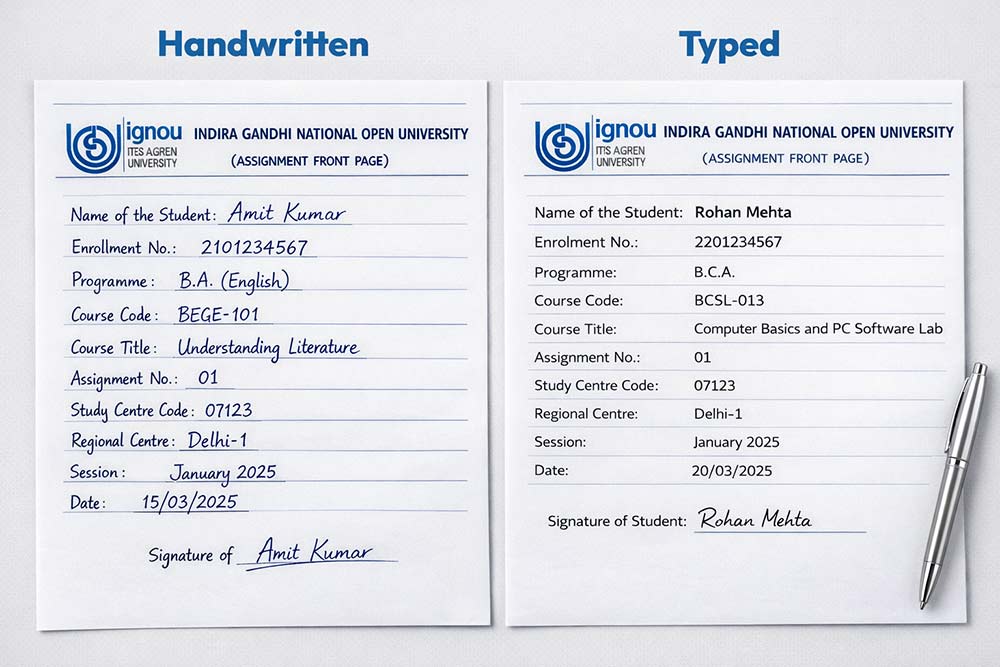 Handwritten
ignou
ITES AGREN
UNIVERSITY
INDIRA GANDHI NATIONAL OPEN UNIVERSITY
(ASSIGNMENT FRONT PAGE)
Name of the Student: Amit Kumar
Enrollment No.: 2101234567
Programme: B.A. (English)
Course Code: BEGE-101
Course Title: Understanding Literature
Assignment No.: 01
Study Centre Code: 07123
Regional Centre: Delhi-1
Session: January 2025
Date: 15/03/2025
Signature of Amit Kumar
Typed
ignou
ITS AGREN
UNIVERSITY
INDIRA GANDHI NATIONAL OPEN UNIVERSITY
(ASSIGNMENT FRONT PAGE)
Name of the Student: Rohan Mehta
Enrolment No.: 2201234567
Programme: B.C.A.
Course Code: BCSL-013
Course Title: Computer Basics and PC Software Lab
Assignment No.: 01
Study Centre Code: 07123
Regional Centre: Delhi-1
Session: January 2025
Date: 20/03/2025
Signature of Student: Rohan Mehta